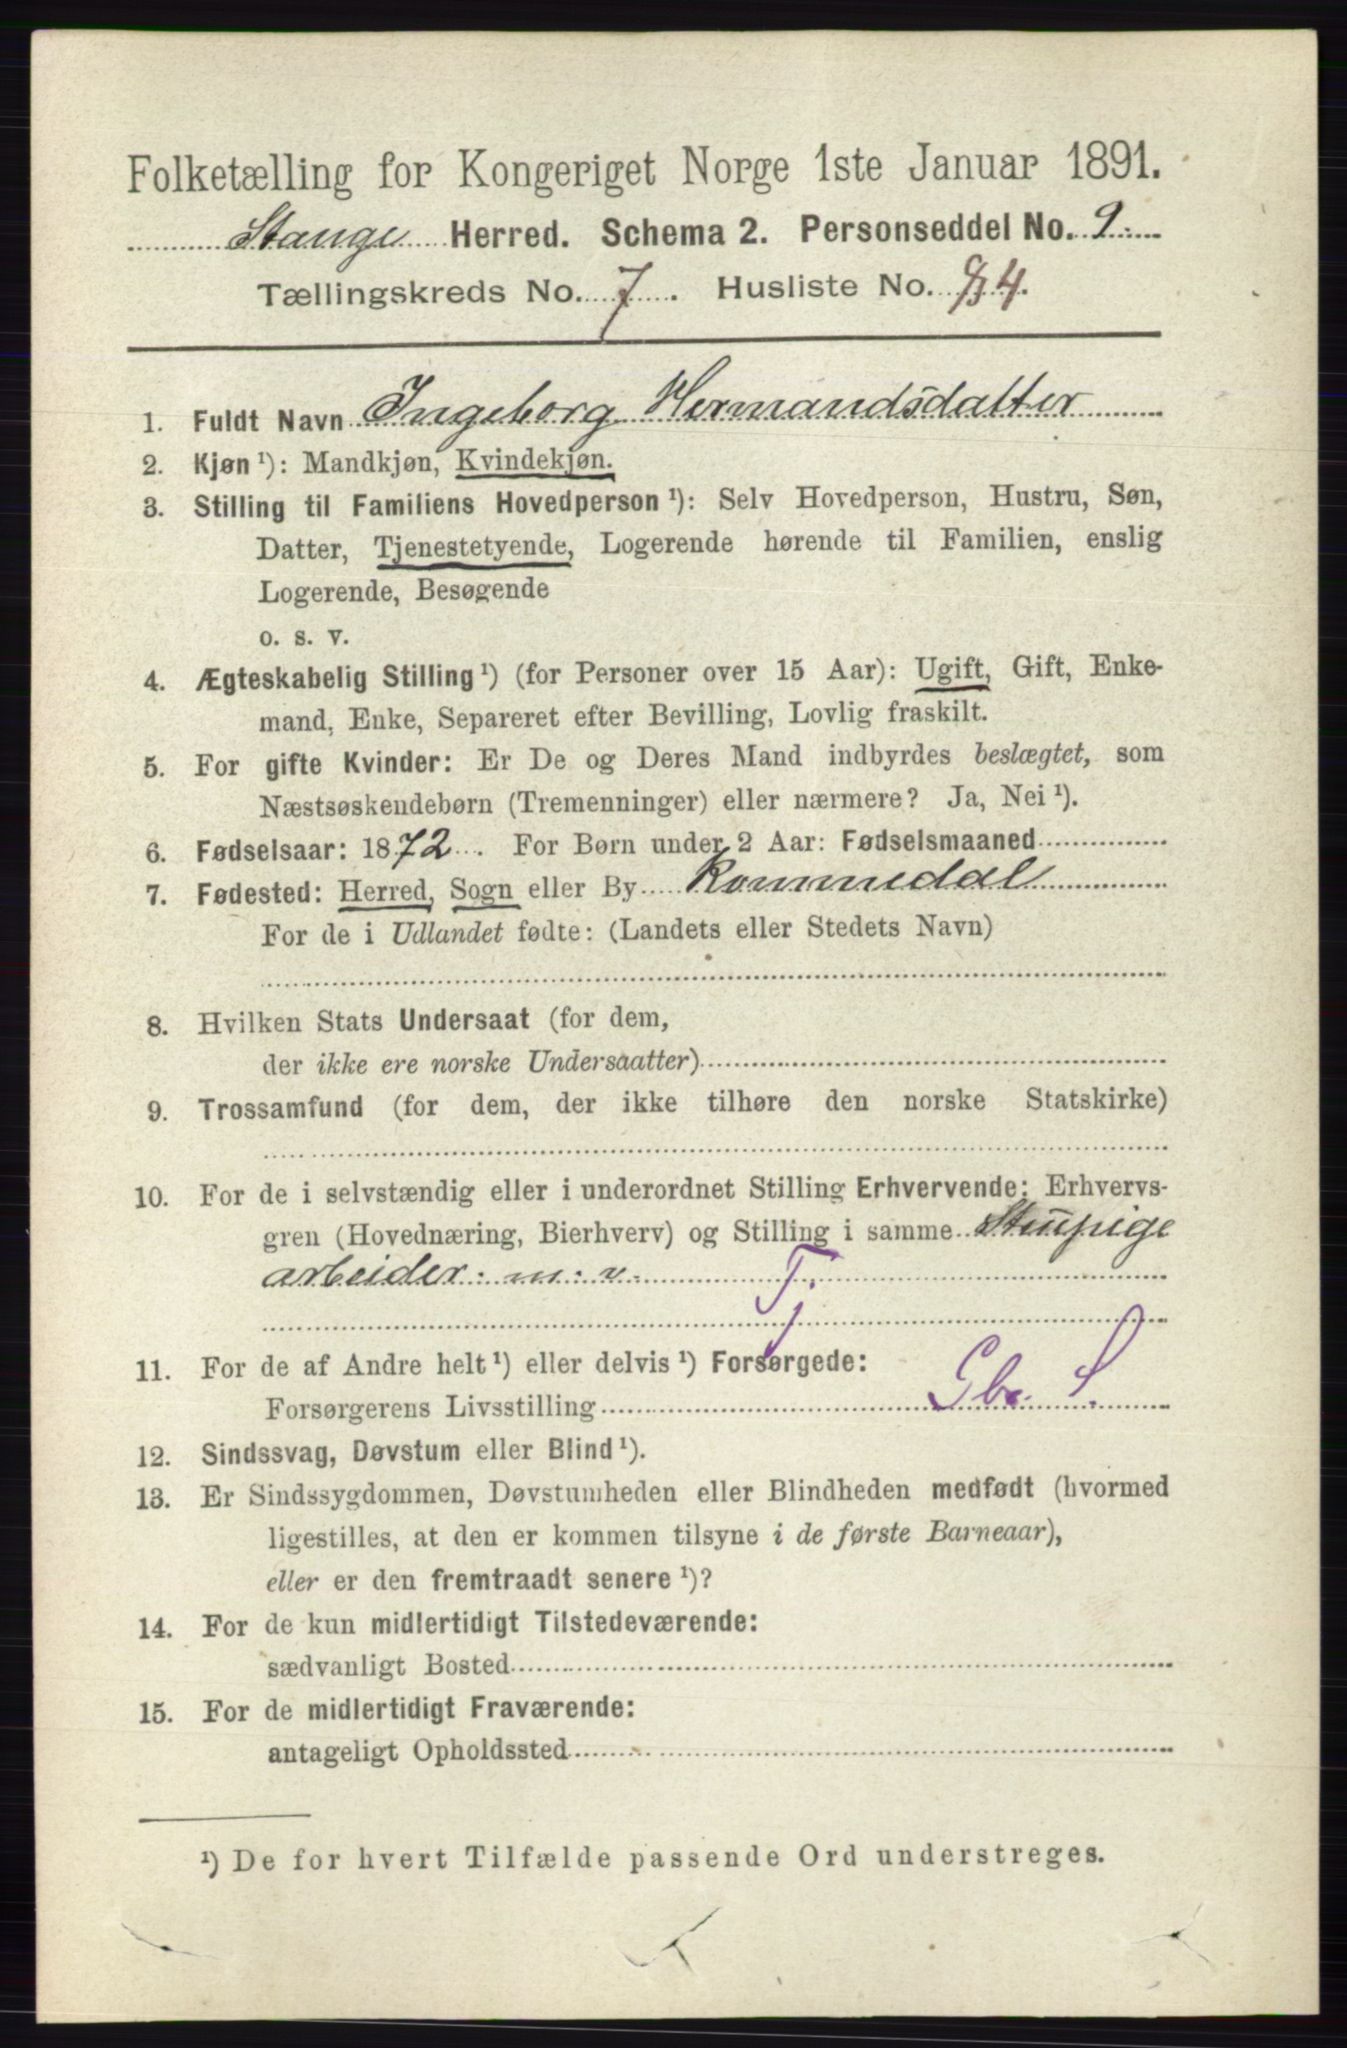 Folketælling for Kongeriget Norge 1ste Januar 1891.
Stange Herred. Schema 2. Personseddel No. 9.
Tællingskreds No. 7. Husliste No. 4.
1. Fuldt Navn Ingeborg Hermandsdatter
2. Kjøn ¹): Mandkjøn, Kvindekjøn.
3. Stilling til Familiens Hovedperson ¹): Selv Hovedperson, Hustru, Søn,
Datter, Tjenestetyende, Logerende hørende til Familien, enslig
Logerende, Besøgende
o. s. v.
4. Ægteskabelig Stilling ¹) (for Personer over 15 Aar): Ugift, Gift, Enke-
mand, Enke, Separeret efter Bevilling, Lovlig fraskilt.
5. For gifte Kvinder: Er De og Deres Mand indbyrdes beslægtet, som
Næstsøskendebørn (Tremenninger) eller nærmere? Ja, Nei ¹).
6. Fødselsaar: 1872. For Børn under 2 Aar: Fødselsmaaned
7. Fødested: Herred, Sogn eller By Rommedal
For de i Udlandet fødte: (Landets eller Stedets Navn)
8. Hvilken Stats Undersaat (for dem,
der ikke ere norske Undersaatter)
9. Trossamfund (for dem, der ikke tilhøre den norske Statskirke)
10. For de i selvstændig eller i underordnet Stilling Erhvervende: Erhvervs-
gren (Hovednæring, Bierhverv) og Stilling i samme Stuepige
arbeider m. v.
Tj
11. For de af Andre helt ¹) eller delvis ¹) Forsørgede:
Forsørgerens Livsstilling Gbr. S.
12. Sindssvag, Døvstum eller Blind ¹).
13. Er Sindssygdommen, Døvstumheden eller Blindheden medfødt (hvormed
ligestilles, at den er kommen tilsyne i de første Barneaar),
eller er den fremtraadt senere ¹)?
14. For de kun midlertidigt Tilstedeværende:
sædvanligt Bosted
15. For de midlertidigt Fraværende:
antageligt Opholdssted
¹) De for hvert Tilfælde passende Ord understreges.